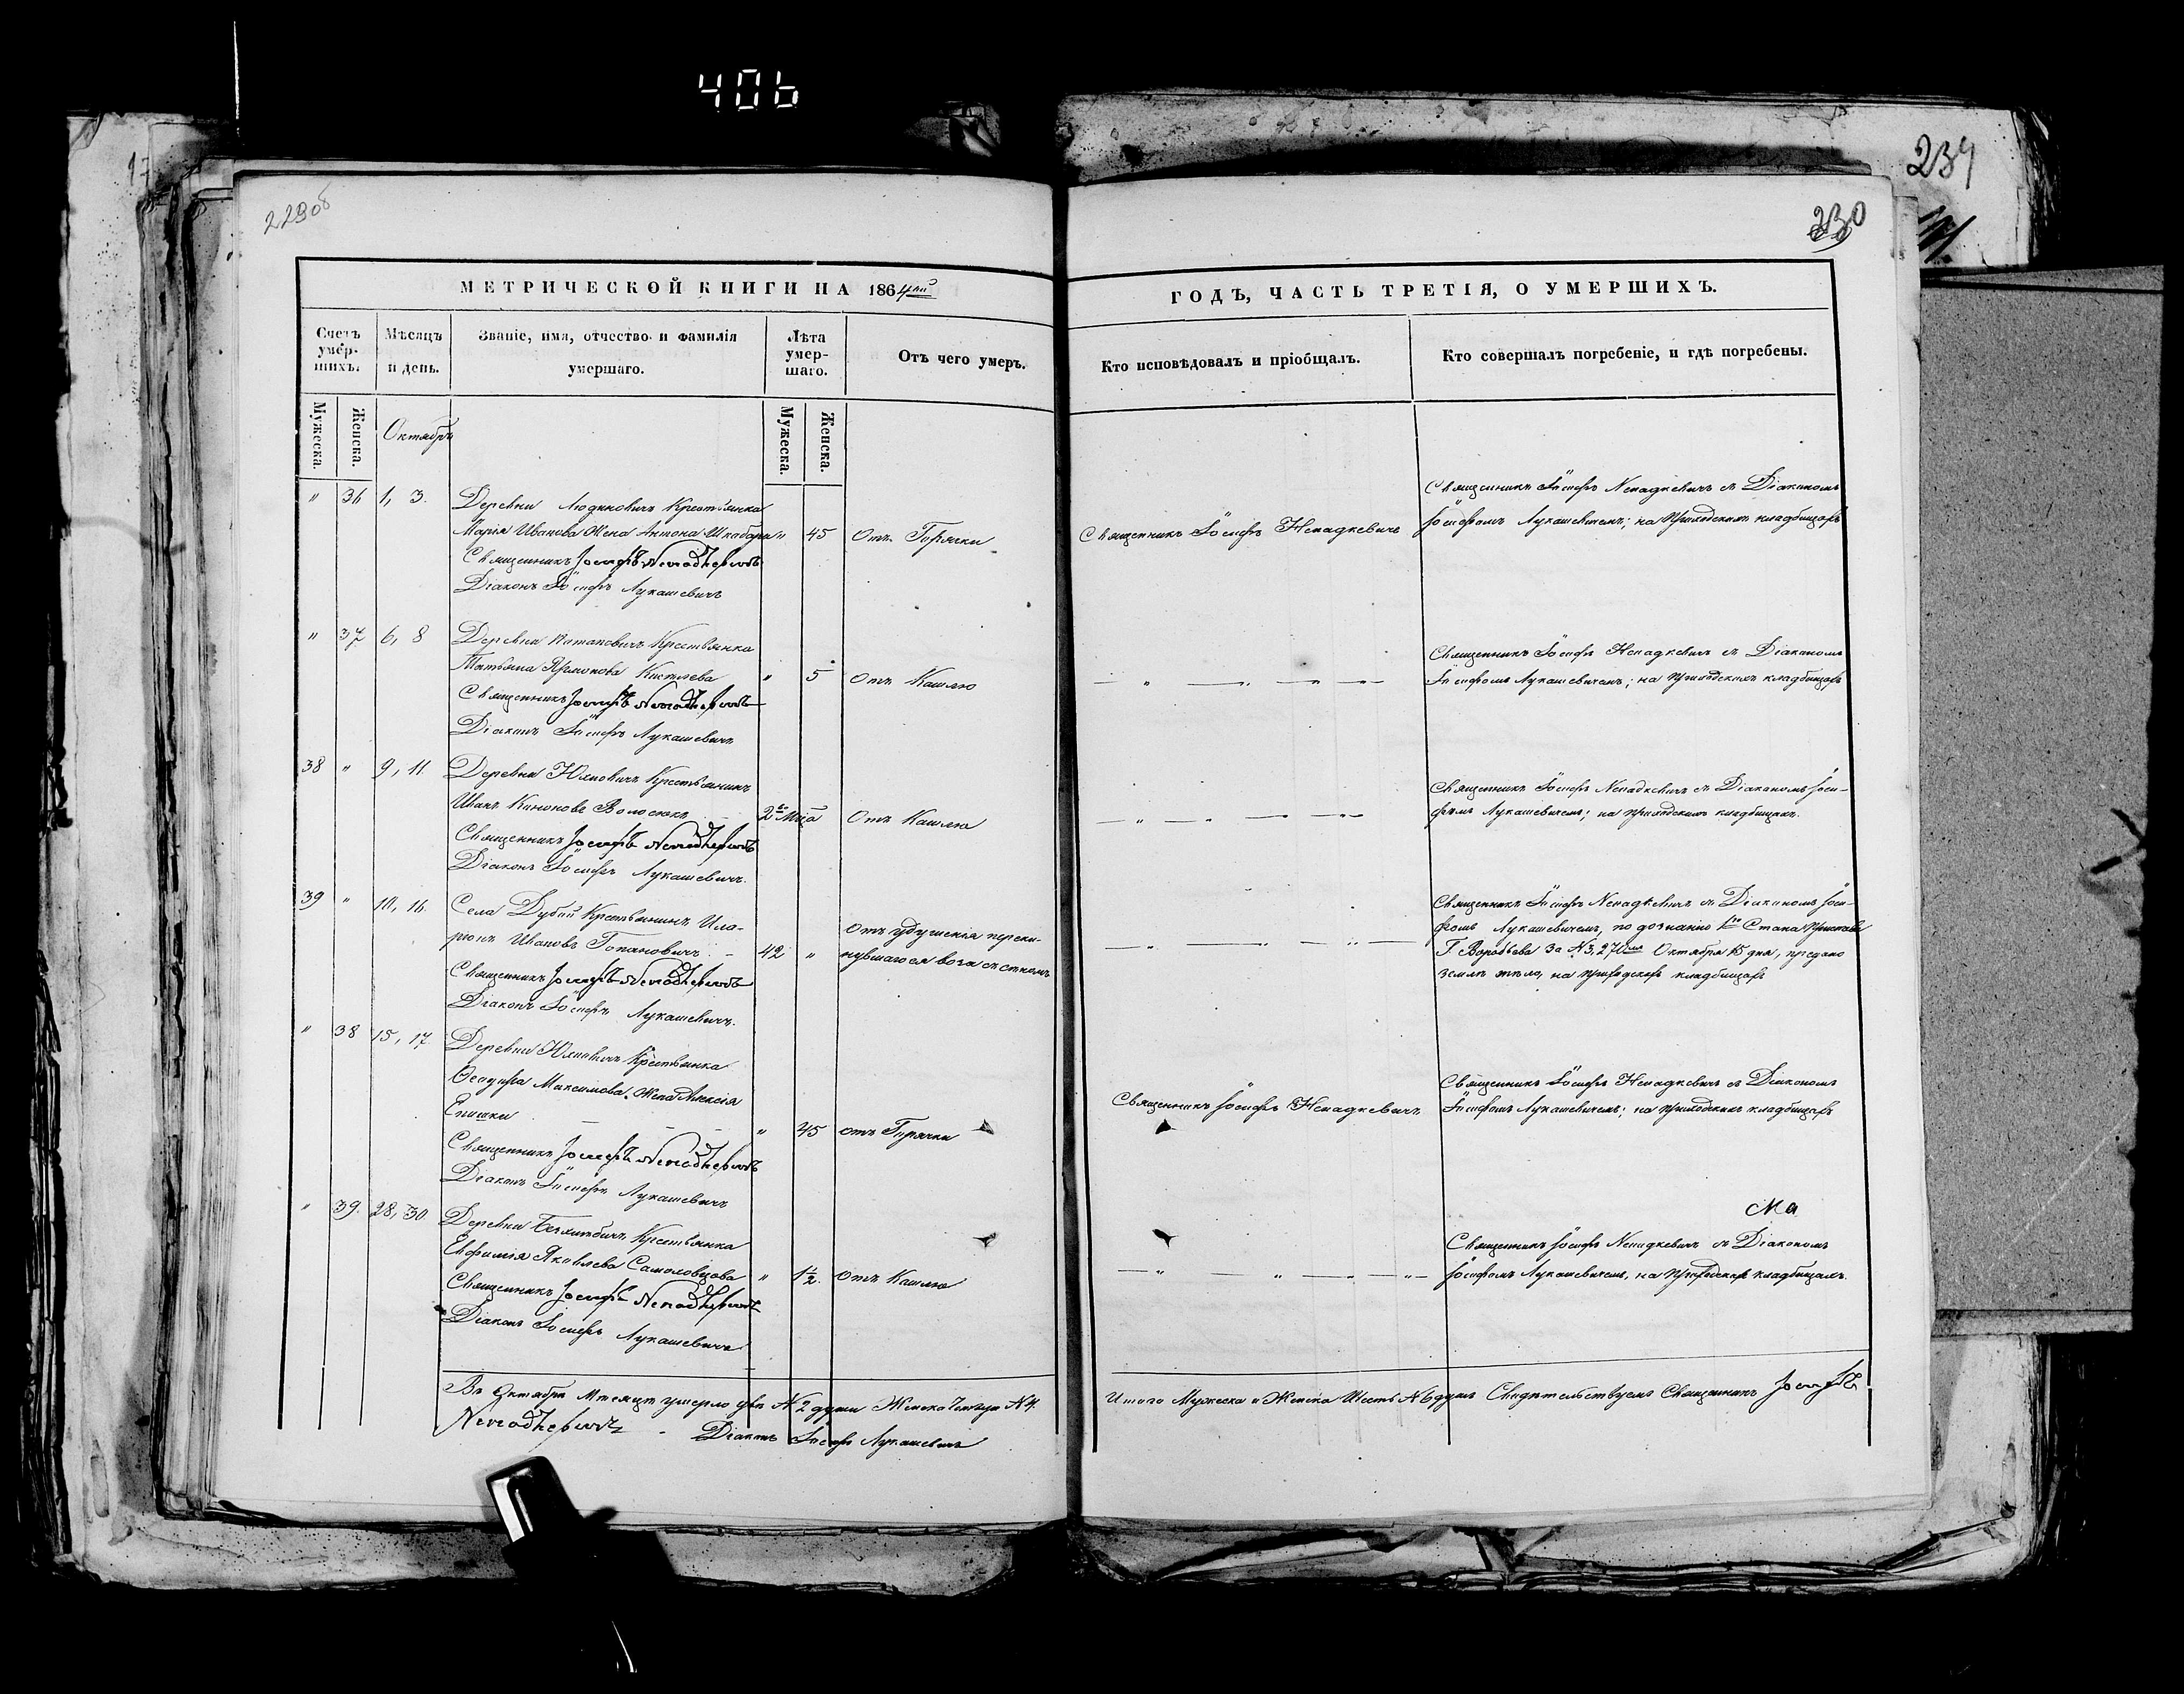 406
229об
234
230
МЕТРИЧЕСКОЙ КНИГИ НА 1864ый
ГОДЪ, ЧАСТЬ ТРЕТІЯ, О УМЕРШИХЪ.
Счетъ умер- шихъ.
Мѣсяцъ и день.
Званіе, имя, отчество и фамилія умершаго.
Лѣта умер- шаго.
Отъ чего умеръ.
Кто исповѣдовалъ и пріобщалъ.
Кто совершалъ погребеніе, и гдѣ погребены.
Мужеска. Женска.
Октябрь
Мужеска. Женска.
" 36 1, 3. Деревни Людиновичъ Крестьянка
Марія Иванова Жена Антона " 45 Отъ Горячки
Священникъ Іосифъ Ненадкевичъ
Діаконъ Іосифъ Лукашевичъ
Священникъ Іосифъ Ненадкевичъ
Священникъ Іосифъ Ненадкевичъ съ Діакономъ
Іосифомъ Лукашевичемъ; на приходскихъ кладбищахъ
" 37 6, 8 Деревни Крестьянка
Татьяна " 5 Отъ Кашлю
Священникъ Іосифъ Ненадкевичъ
Діаконъ Іосифъ Лукашевичъ
— " — " — " —
Священникъ Іосифъ Ненадкевичъ съ Діакономъ
Іосифомъ Лукашевичемъ; на приходскихъ кладбищахъ
38 " 9, 11. Деревни Юхновичъ Крестьянинъ
Иванъ Отъ Кашлю
Священникъ Іосифъ Ненадкевичъ
Діаконъ Іосифъ Лукашевичъ.
— " — " — " —
Священникъ Іосифъ Ненадкевичъ съ Діакономъ Іоси-
фомъ Лукашевичемъ; на приходскихъ кладбищахъ.
39 " 10, 16. Села Дубой Крестьянинъ Ила-
ріонъ Ивановъ 42 " Отъ удушенія переки-
нувшагося воза съ сѣномъ
Священникъ Іосифъ Ненадкевичъ
Діаконъ Іосифъ Лукашевичъ.
— " — " — " —
Священникъ Іосифъ Ненадкевичъ съ Діакономъ Іоси-
фомъ Лукашевичемъ, по дознанію 1го Стана Пристава
Г. Воробьева за N 3,270мъ Октября 15 дня, предано
землѣ тѣло, на приходскихъ кладбищахъ
" 38 15, 17. Деревни Юхновичъ Крестьянка
Максимова, Жена Алексія
" 45 отъ Горячки
Священникъ Іосифъ Ненадкевичъ
Діаконъ Іосифъ Лукашевичъ
Священникъ Іосифъ Ненадкевичъ
Священникъ Іосифъ Ненадкевичъ съ Діакономъ
Іосифомъ Лукашевичемъ; на приходскихъ кладбищахъ
" 39. 28, 30. Деревни Крестьянка
Евфимія Яковлева " 1½. отъ Кашлю
Священникъ Іосифъ Ненадкевичъ
Діаконъ Іосифъ Лукашевичъ
— " — " — " —
Священникъ Іосифъ Ненадкевичъ съ Діакономъ
Іосифомъ Лукашевичемъ, на приходскихъ кладбищахъ.
Въ Октябрѣ Мѣсяцѣ умерло двѣ N 2 души Женска Четыре N 4.
Итого Мужеска и Женска Шесть N 6 душъ Свидѣтельствуемъ Священникъ Іосифъ
Ненадкевичъ - Діаконъ Іосифъ Лукашевичъ